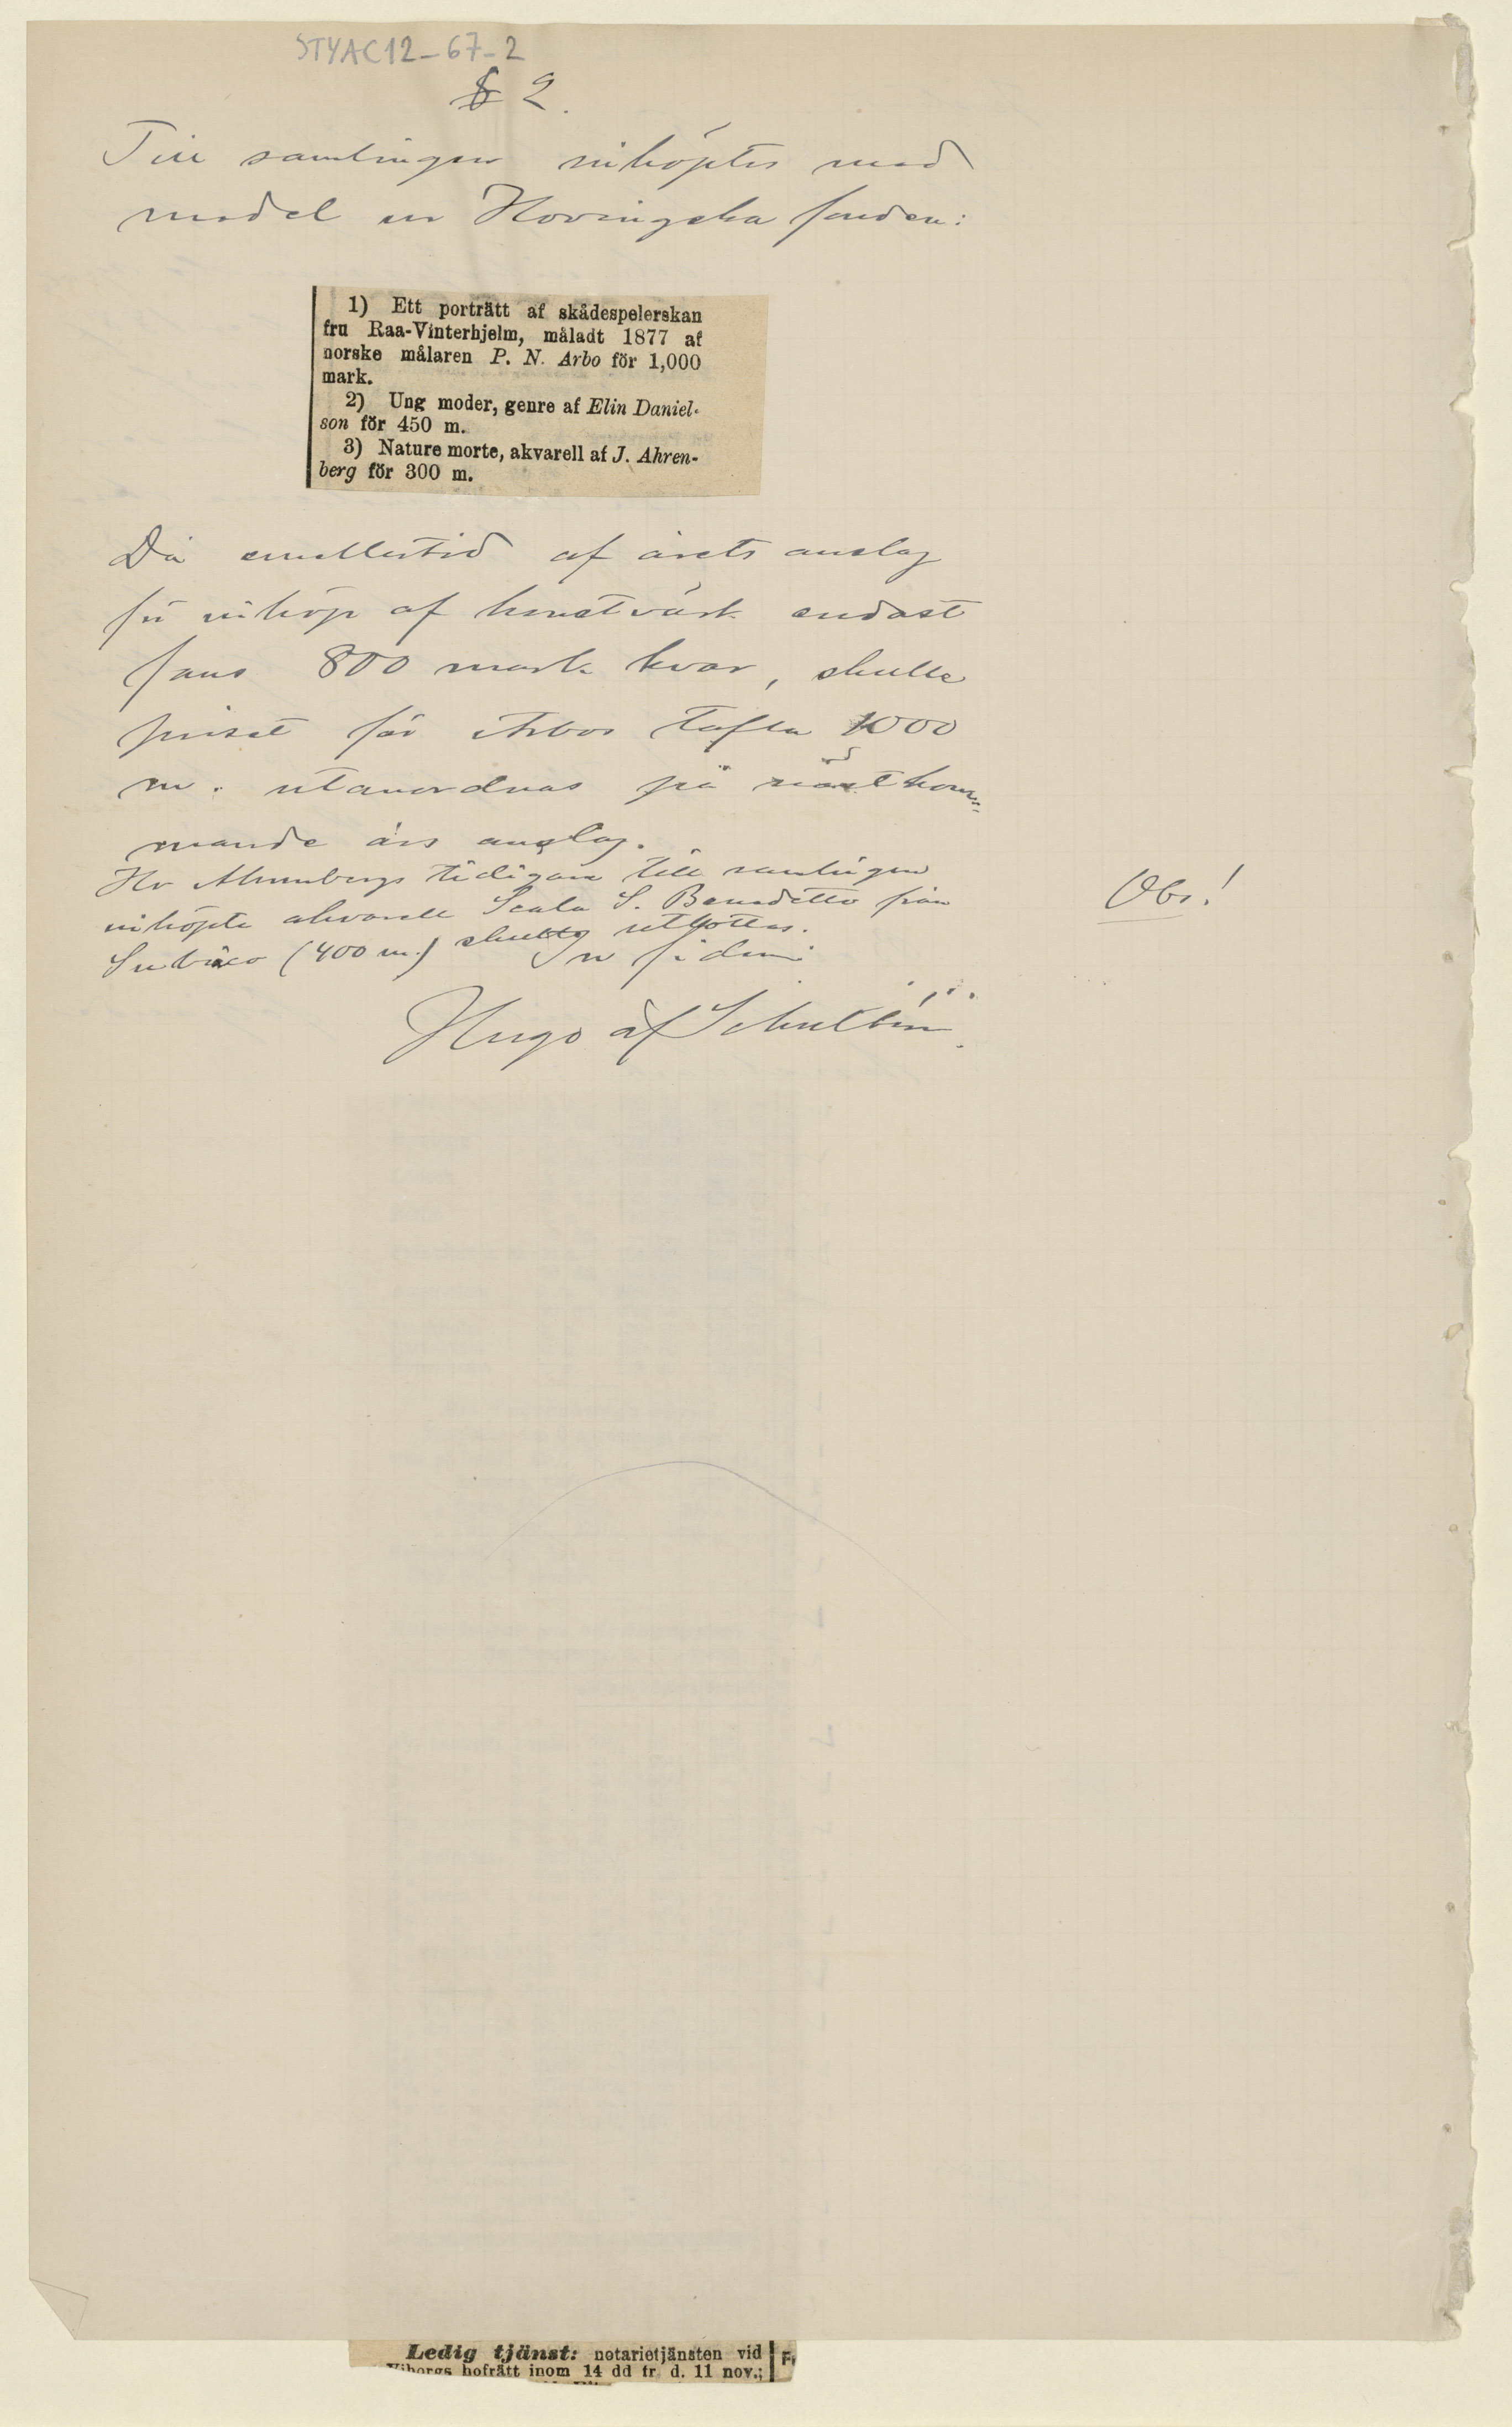 STYAC12-67-2
§ 2.
Till samlingen inköptes med
medel ur Hovingska fonden:
1) Ett porträtt af skådespelerskan
fru Raa-Vinterhjelm, måladt 1877 af
norske målaren P. N. Arbo för 1,000
mark.
2) Ung moder, genre af Elin Daniel-
son för 450 m.
3) Nature morte, akvarell af J. Ahren-
berg för 300 m.
Då emellertid af årets anslag
för inköp af konstvärk endast
fans 800 mark kvar, skulle
priset för Arbos tafla 1000
m. utanordnas på näst kom-
mande års anslag.
Hr Ahrenbergs tidigare till samlingen
inköpta akvarell Scala S. Benedetto från
Subiaco (400 m.) skulle utlottas.
Obs!
In fidem
Hugo af Schultén.
Ledig tjänst: notarietjänsten vid
Viborgs hofrätt inom 14 dd fr. d. 11 nov.;